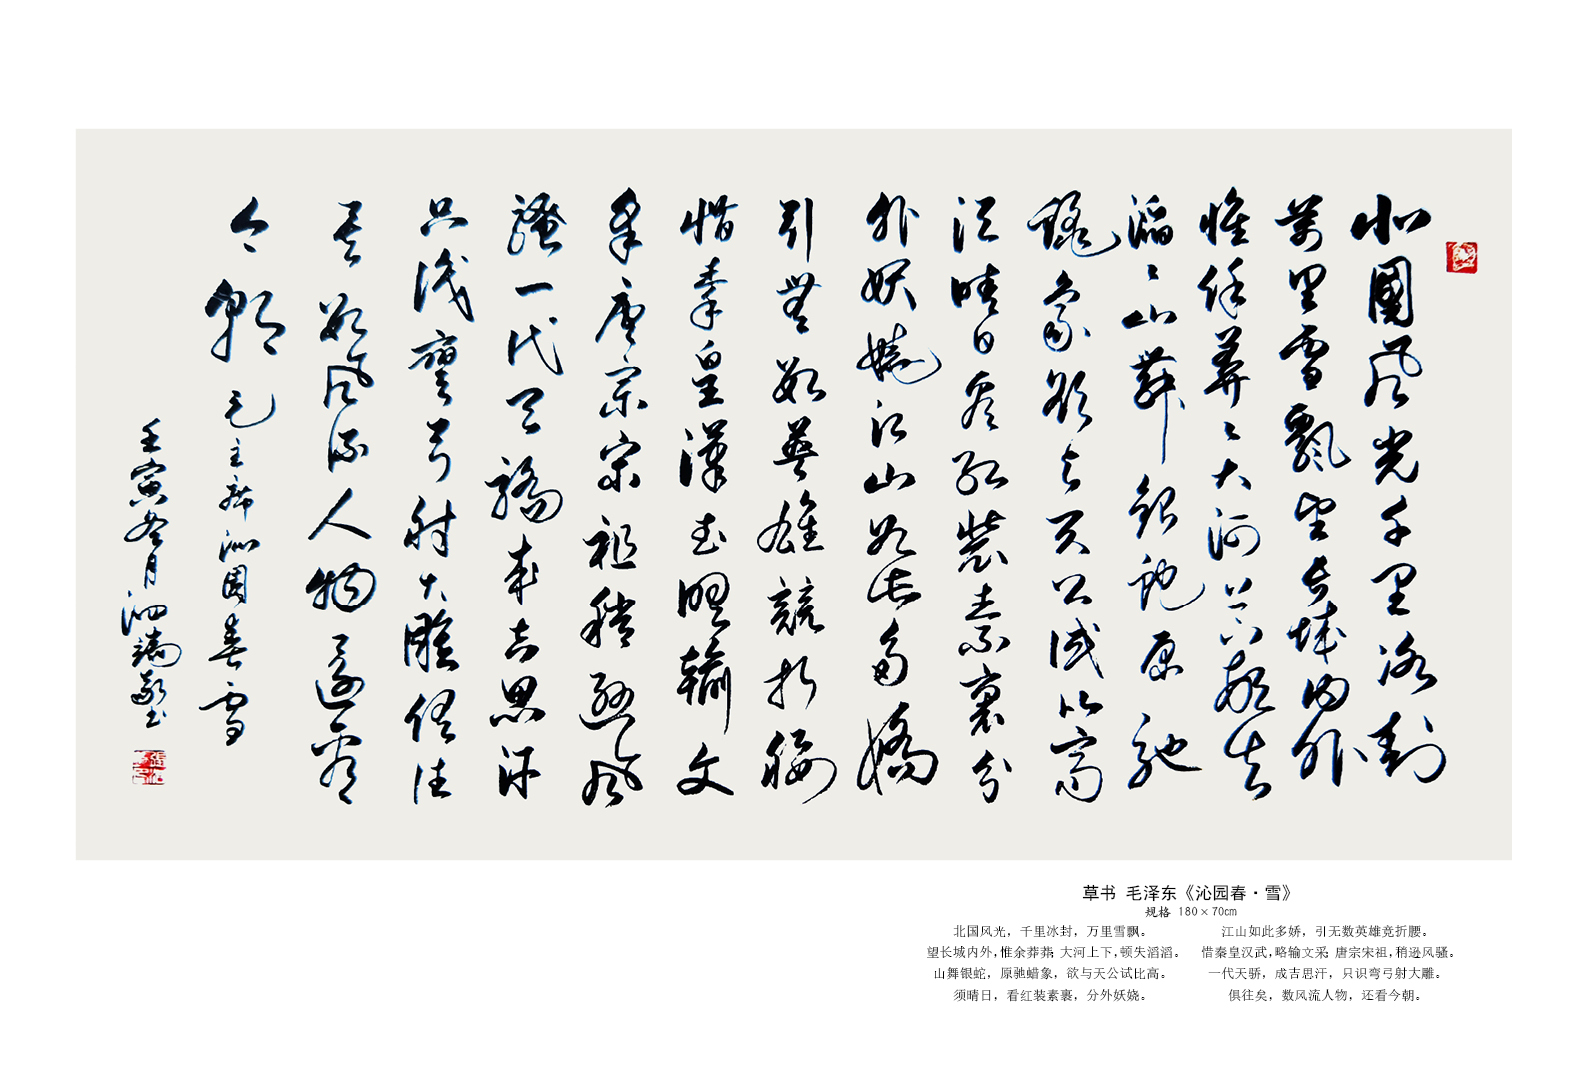 北國風光千里冰封
萬里雪飄望長城内外
惟余莽〻大河上下頓失
滔〻山舞銀蛇原馳
蜡象欲与天公試比高
须晴日看红装素裹分
外妖娆江山如此多娇
引無数英雄競折腰
惜秦皇漢武略輸文
采唐宗宋祖稍逊風
骚一代天骄成吉思汗
只識彎弓射大雕俱往
矣数風流人物還看
今朝 毛主席沁园春雪
壬寅冬月泗端敬书
草书 毛泽东《沁园春·雪》
规格 180×70cm
北国风光，千里冰封，万里雪飘。
望长城内外,惟余莽莽；大河上下,顿失滔滔。
山舞银蛇，原驰蜡象，欲与天公试比高。
须晴日，看红装素裹，分外妖娆。
江山如此多娇，引无数英雄竞折腰。
惜秦皇汉武,略输文采；唐宗宋祖,稍逊风骚。
一代天骄，成吉思汗，只识弯弓射大雕。
俱往矣，数风流人物，还看今朝。